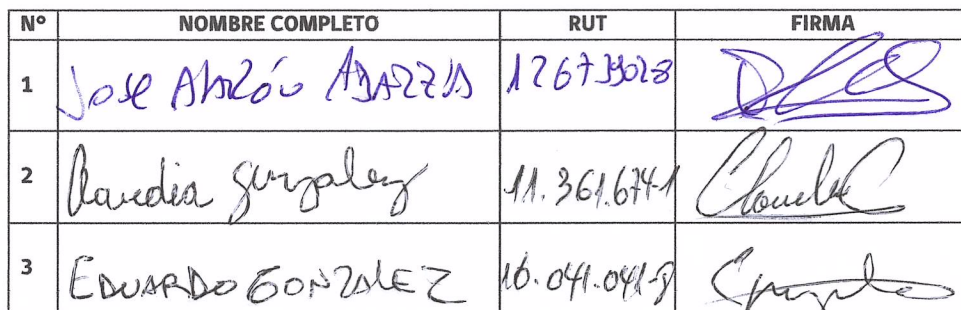 N° NOMBRE COMPLETO RUT FIRMA
1 Jose Alarcón 12673902-8
2 Claudia Gonzalez 11.361.674-1
3 EDUARDO GONZALEZ 16.041.041-8